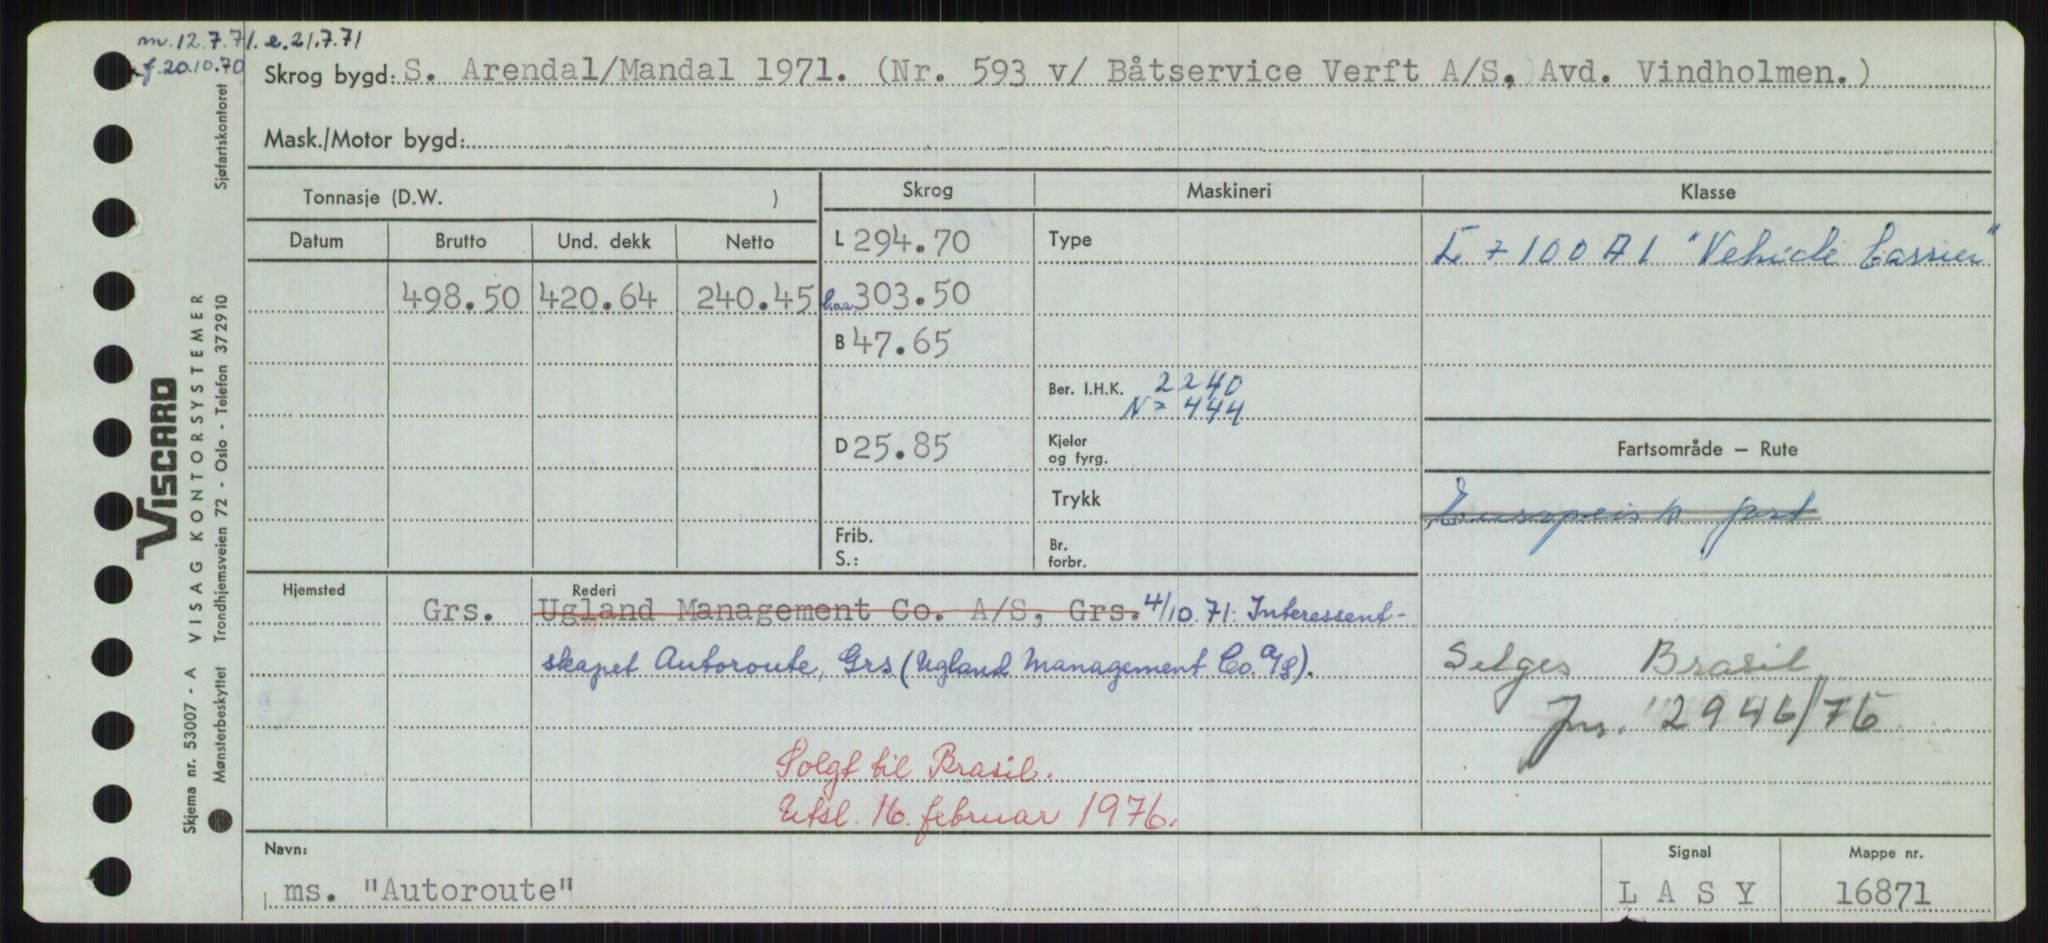 m. 12.7.71. e. 21.7.71
f. 20.10.70
Skrog bygd: S. Arendal/Mandal 1971. (Nr. 593 v/ Båtservice Verft A/S, Avd. Vindholmen.)
Mask./Motor bygd:
Tonnasje (D.W. )
Skrog
Maskineri
Klasse
Datum Brutto Und. dekk Netto
L 294.70
Type
+ 100 A1 "Vehicle Carrier"
498.50 420.64 240.45
l.aa. 303.50
B 47.65
Ber. I.H.K. 2240
N = 444
D 25.85
Kjeler
og fyrg.
Fartsområde – Rute
Trykk
Europeisk fart
Frib.
S.:
Br.
forbr.
Hjemsted
Rederi
Grs. Ugland Management Co. A/S, Grs. 4/10.71. Interessent-
skapet Autoroute, Grs (Ugland Management Co. A/S).
Selges Brasil
Jnr. 2946/76
Solgt til Brasil.
Utsl. 16. februar 1976.
Navn:
ms. "Autoroute"
Signal
L A S Y
Mappe nr.
16871
VISCARD
VISAG KONTORSYSTEMER
Skjema nr. 53007 - A
Mønsterbeskyttet Trondhjemsveien 72 - Oslo - Telefon 372910
Sjøfartskontoret